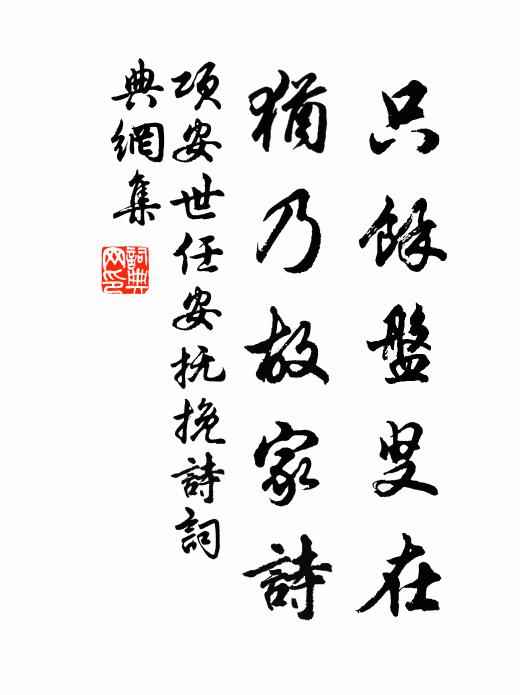 只餘盤叟在
猶乃故家詩
項安世任安抚挽詩詞
典網集
詞典
网印